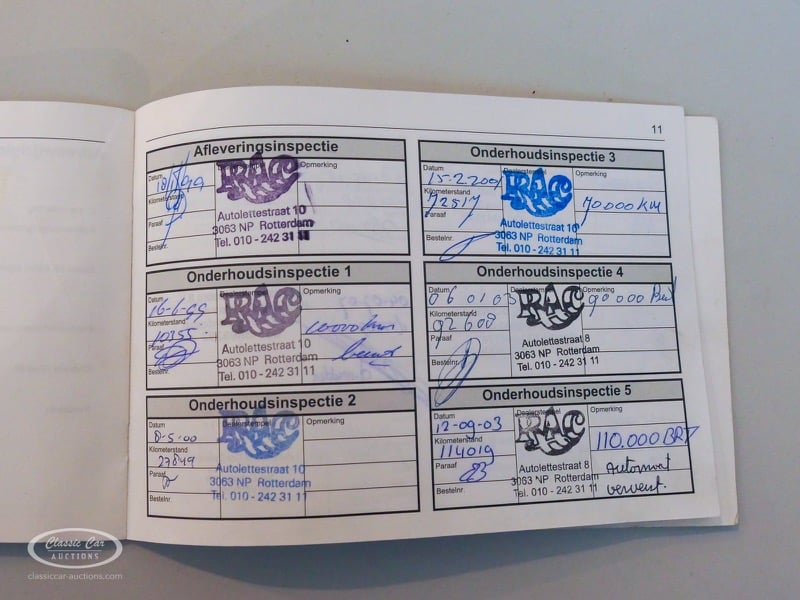 11
Afleveringsinspectie
Datum
Dealerstempel
Opmerking
Kilometerstand
Paraaf
Bestelnr.
RAC
Autolettestraat 10
3063 NP Rotterdam
Tel. 010 - 242 31 11
Onderhoudsinspectie 1
Datum 16-6-99
Dealerstempel
Opmerking
Kilometerstand 10355
Paraaf
Bestelnr.
RAC
Autolettestraat 10
3063 NP Rotterdam
Tel. 010 - 242 31 11
10000 km
beurt
Onderhoudsinspectie 2
Datum 8-5-00
Dealerstempel
Opmerking
Kilometerstand 27849
Paraaf
Bestelnr.
RAC
Autolettestraat 10
3063 NP Rotterdam
Tel. 010 - 242 31 11
Onderhoudsinspectie 3
Datum 15-2-2001
Dealerstempel
Opmerking
Kilometerstand 72517
70000 KM
Paraaf
Bestelnr.
RAC
Autolettestraat 10
3063 NP Rotterdam
Tel. 010 - 242 31 11
Onderhoudsinspectie 4
Datum 06 01 03
Dealerstempel
Opmerking
90000 Brt
Kilometerstand 92600
Paraaf
Bestelnr.
RAC
Autolettestraat 8
3063 NP Rotterdam
Tel. 010 - 242 31 11
Onderhoudsinspectie 5
Datum 12-09-03
Dealerstempel
Opmerking
110.000 BRT
Kilometerstand 114019
Paraaf
Bestelnr.
RAC
Autolettestraat 8
3063 NP Rotterdam
Tel. 010 - 242 31 11
Automaat
ververst.
Classic Car
AUCTIONS
classiccar-auctions.com